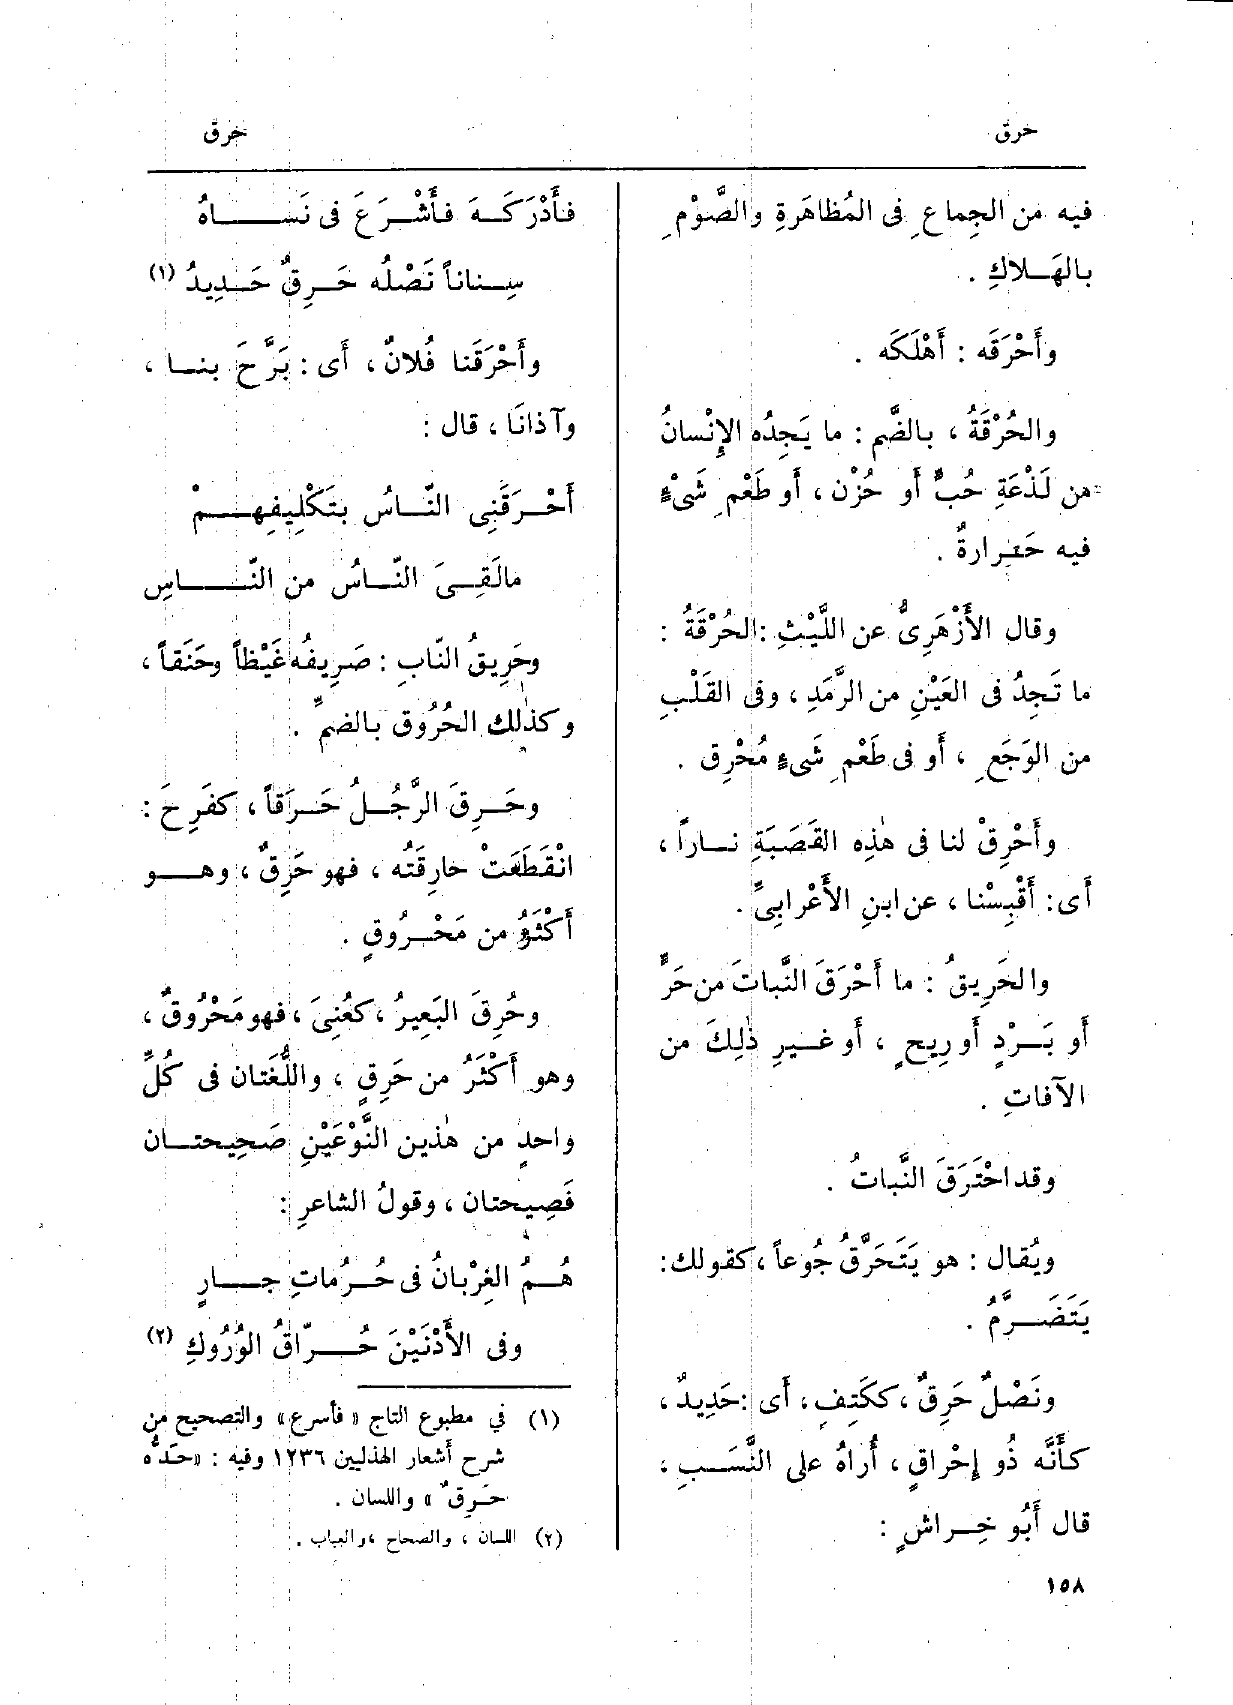 حرق
حرق
فيه من الجِماعِ فى المُظاهَرةِ والصَّوْمِ
بالهَلاكِ .
وأَحْرَقَه : أَهْلَكَه .
والحُرْقَةُ ، بالضَّم : ما يَجِدُه الإِنْسانُ
من لَذْعَةِ حُبٍّ أَو حُزْن ، أَو طَعْمِ شَىْءٍ
فيه حَرارةٌ .
وقال الأَزْهَرِىُّ عن اللَّيْثِ : الحُرْقَةُ :
ما تَجِدُ فى العَيْنِ من الرَّمَدِ ، وفى القَلْبِ
من الوَجَعِ ، أَو فى طَعْمِ شَىءٍ مُحْرِق .
وأَحْرِقْ لنا فى هٰذِه القَصَبَةِ نــاراً ،
أَى : أَقْبِسْنا ، عن ابنِ الأَعْرابِىِّ .
والحَرِيقُ : ما أَحْرَقَ النَّباتَ من حَرٍّ
أَو بَــرْدٍ أَو رِيحٍ ، أَو غــيرِ ذٰلِكَ من
الآفاتِ .
وقد احْتَرَقَ النَّباتُ .
ويُقال : هو يَتَحَرَّقُ جُوعاً ، كقولك :
يَتَضَــرَّمُ .
ونَصْلٌ حَرِقٌ ، ككَتِفٍ ، أَى : حَدِيدٌ ،
كأَنَّه ذُو إِحْراقٍ ، أُراهُ على النَّسَــبِ ،
قال أَبُو خِــراشٍ :
فأَدْرَكَــهَ فأَشْــرَعَ فى نَســــاهُ
سِــناناً نَصْلُه حَــرِقٌ حَــدِيدُ (١)
وأَحْرَقَنا فُلانٌ ، أَى : بَرَّحَ بنــا ،
وآذانَا ، قال :
أَحْــرَقَنِى النّــاسُ بتَكْلِيفِهــمْ
مالَقِــىَ النّــاسُ من النّــــاسِ
وحَرِيقُ النّابِ : صَرِيفُه غَيْظاً وحَنَقاً ،
وكذٰلك الحُرُوق بالضمِّ .
وحَــرِقَ الرَّجُــلُ حَــرَقاً ، كفَرِحَ :
انْقَطَعَتْ حارِقَتُه ، فهو حَرِقٌ ، وهــو
أَكْثَرُ من مَحْــرُوقٍ .
وحُرِقَ البَعِيرُ ، كعُنِىَ ، فهو مَحْرُوقٌ ،
وهو أَكْثَرُ من حَرِقٍ ، واللُّغَتان فى كُلِّ
واحدٍ من هٰذين النَّوْعَيْنِ صَحِيحتــان
فَصِيحتان ، وقولُ الشاعرِ :
هُــمُ الغِرْبانُ فى حُــرُماتِ جــارٍ
وفى الأَدْنَيْنَ حُــرّاقُ الوُرُوكِ (٢)
(١) في مطبوع التاج « فأسرع » والتصحيح من
شرح أشعار الهذليين ١٢٣٦ وفيه : «حَدُّه
حَــرِقٌ » واللسان .
(٢) اللسان ، والصحاح ، والعباب .
١٥٨